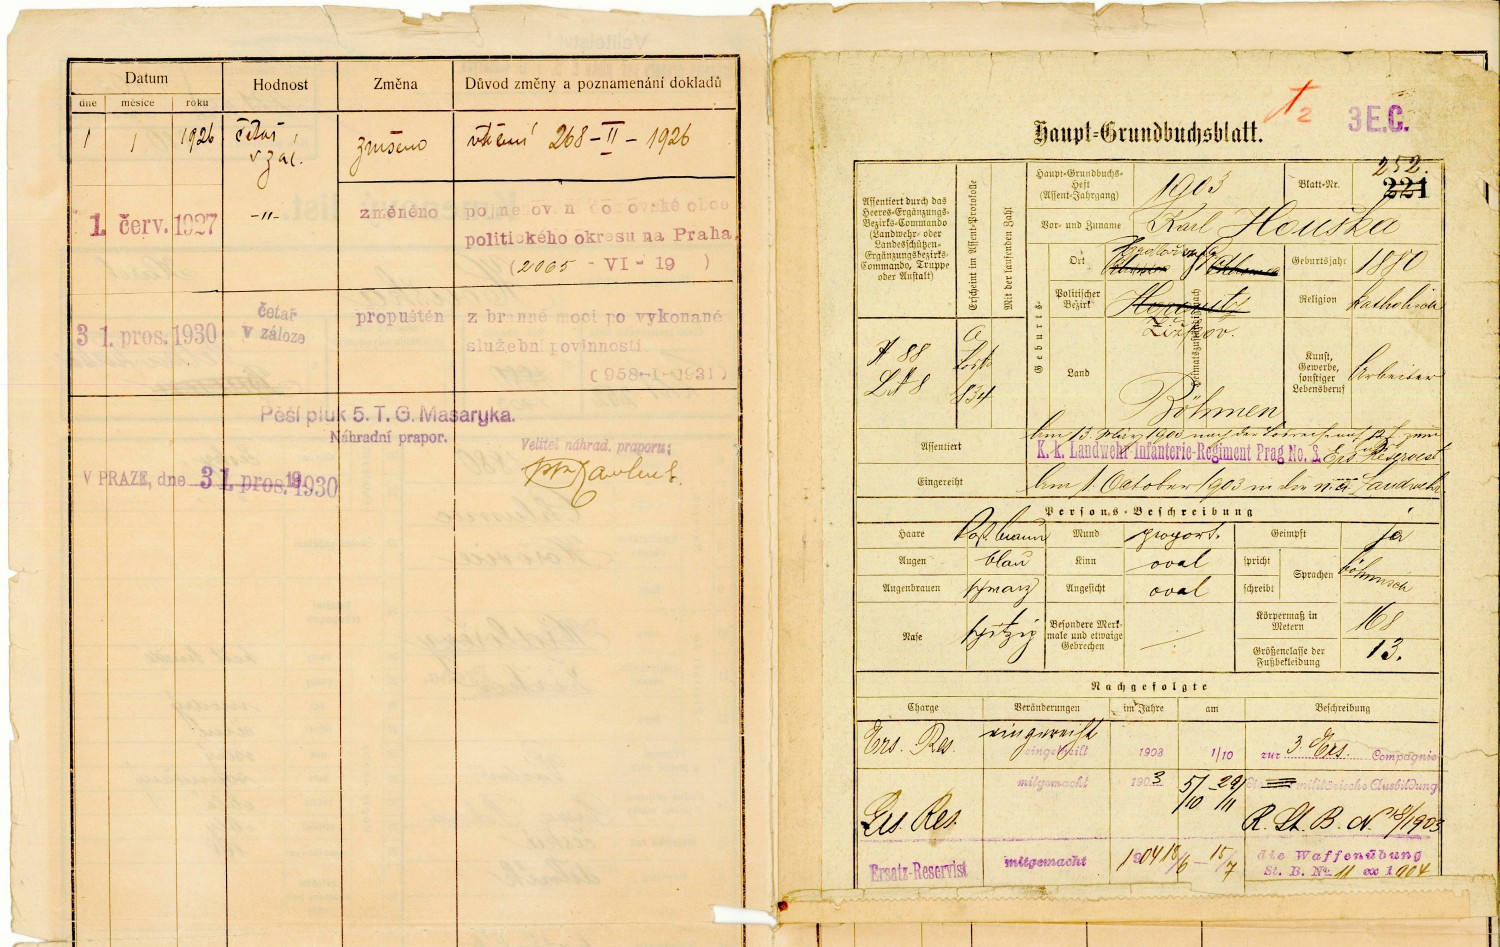 Datum
Hodnost
Změna
Důvod změny a poznamenání dokladů
dne
měsíce
roku
1
1
1926
četař
v zál.
zrušeno
vtělení 268-II-1926
1. červ. 1927
-"-
změněno
politického okresu na Praha
(2065 - VI - 19 )
31. pros. 1930
četař
v záloze
propuštěn
z branné moci po vykonané
služební povinnosti
(958-I-1931)
Pěší pluk 5. T. G. Masaryka.
Náhradní prapor.
Velitel náhrad. praporu:
V PRAZE, dne 31. pros. 1930
†2
3 E.C.
Haupt-Grundbuchsblatt.
Assentiert durch das
Heeres-Ergänzungs-
Bezirks-Commando
(Landwehr- oder
Landesschützen-
Ergänzungsbezirks-
Commando, Truppe
oder Anstalt)
Erscheint im Assent-Protokolle
Mit der laufenden Zahl
Haupt-Grundbuchs-
Heft
(Assent-Jahrgang)
1903
Blatt-Nr.
252.
221
Vor- und Zuname
Karl Houška
Geburts-
Ort
Geburtsjahr
1880
Politischer
Bezirk
Horowitz
Žižkov.
Religion
katholisch
88
834
Land
Böhmen
Kunst,
Gewerbe,
sonstiger
Lebensberuf
Arbeiter
Assentiert
Am 13. März 1903
K. k. Landwehr-Infanterie-Regiment Prag No. 8.
Eingereiht
Am 1. October 1903 in die
Persons-Beschreibung
Haare
Mund
proport.
Geimpft
ja
Augen
blau
Kinn
oval
spricht
Sprachen
böhmisch
Augenbrauen
schwarz
Angesicht
oval
schreibt
Nase
spitzig
Besondere Merk-
male und etwaige
Gebrechen
Körpermaß in
Metern
168
Größenclasse der
Fußbekleidung
13.
Nachgefolgte
Charge
Veränderungen
im Jahre
am
Beschreibung
Ers. Res.
eingereiht
eingetheilt
1903
1/10
zur 3. Ers. Compagnie
mitgemacht
1903
5/10 - 29/11
militärische Ausbildung
Ers. Res.
Ersatz-Reservist
mitgemacht
1904
18/6 - 15/7
die Waffenübung
St. B. Nr. 11 ex 1904